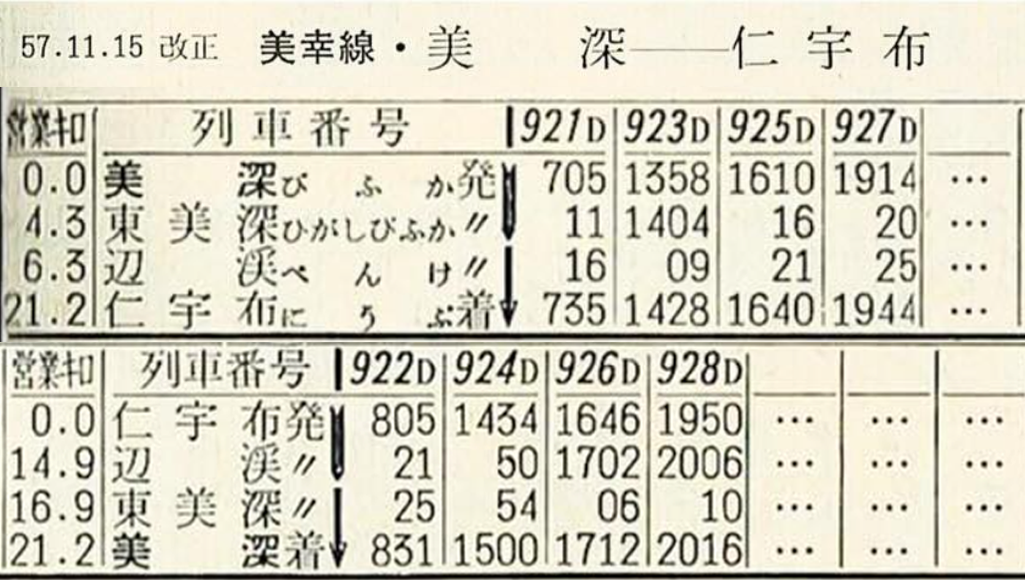 57.11.15 改正 美幸線・美 深──仁宇布
営業キロ 列車番号 921D 923D 925D 927D
0.0 美 深 び ふ か 発 705 1358 1610 1914 …
4.3 東美深 ひがしびふか 〃 11 1404 16 20 …
6.3 辺 渓 ぺ ん け 〃 16 09 21 25 …
21.2 仁宇布 に う ぷ 着 735 1428 1640 1944 …
営業キロ 列車番号 922D 924D 926D 928D
0.0 仁宇布 発 805 1434 1646 1950 … … …
14.9 辺 渓 〃 21 50 1702 2006 … … …
16.9 東美深 〃 25 54 06 10 … … …
21.2 美 深 着 831 1500 1712 2016 … … …